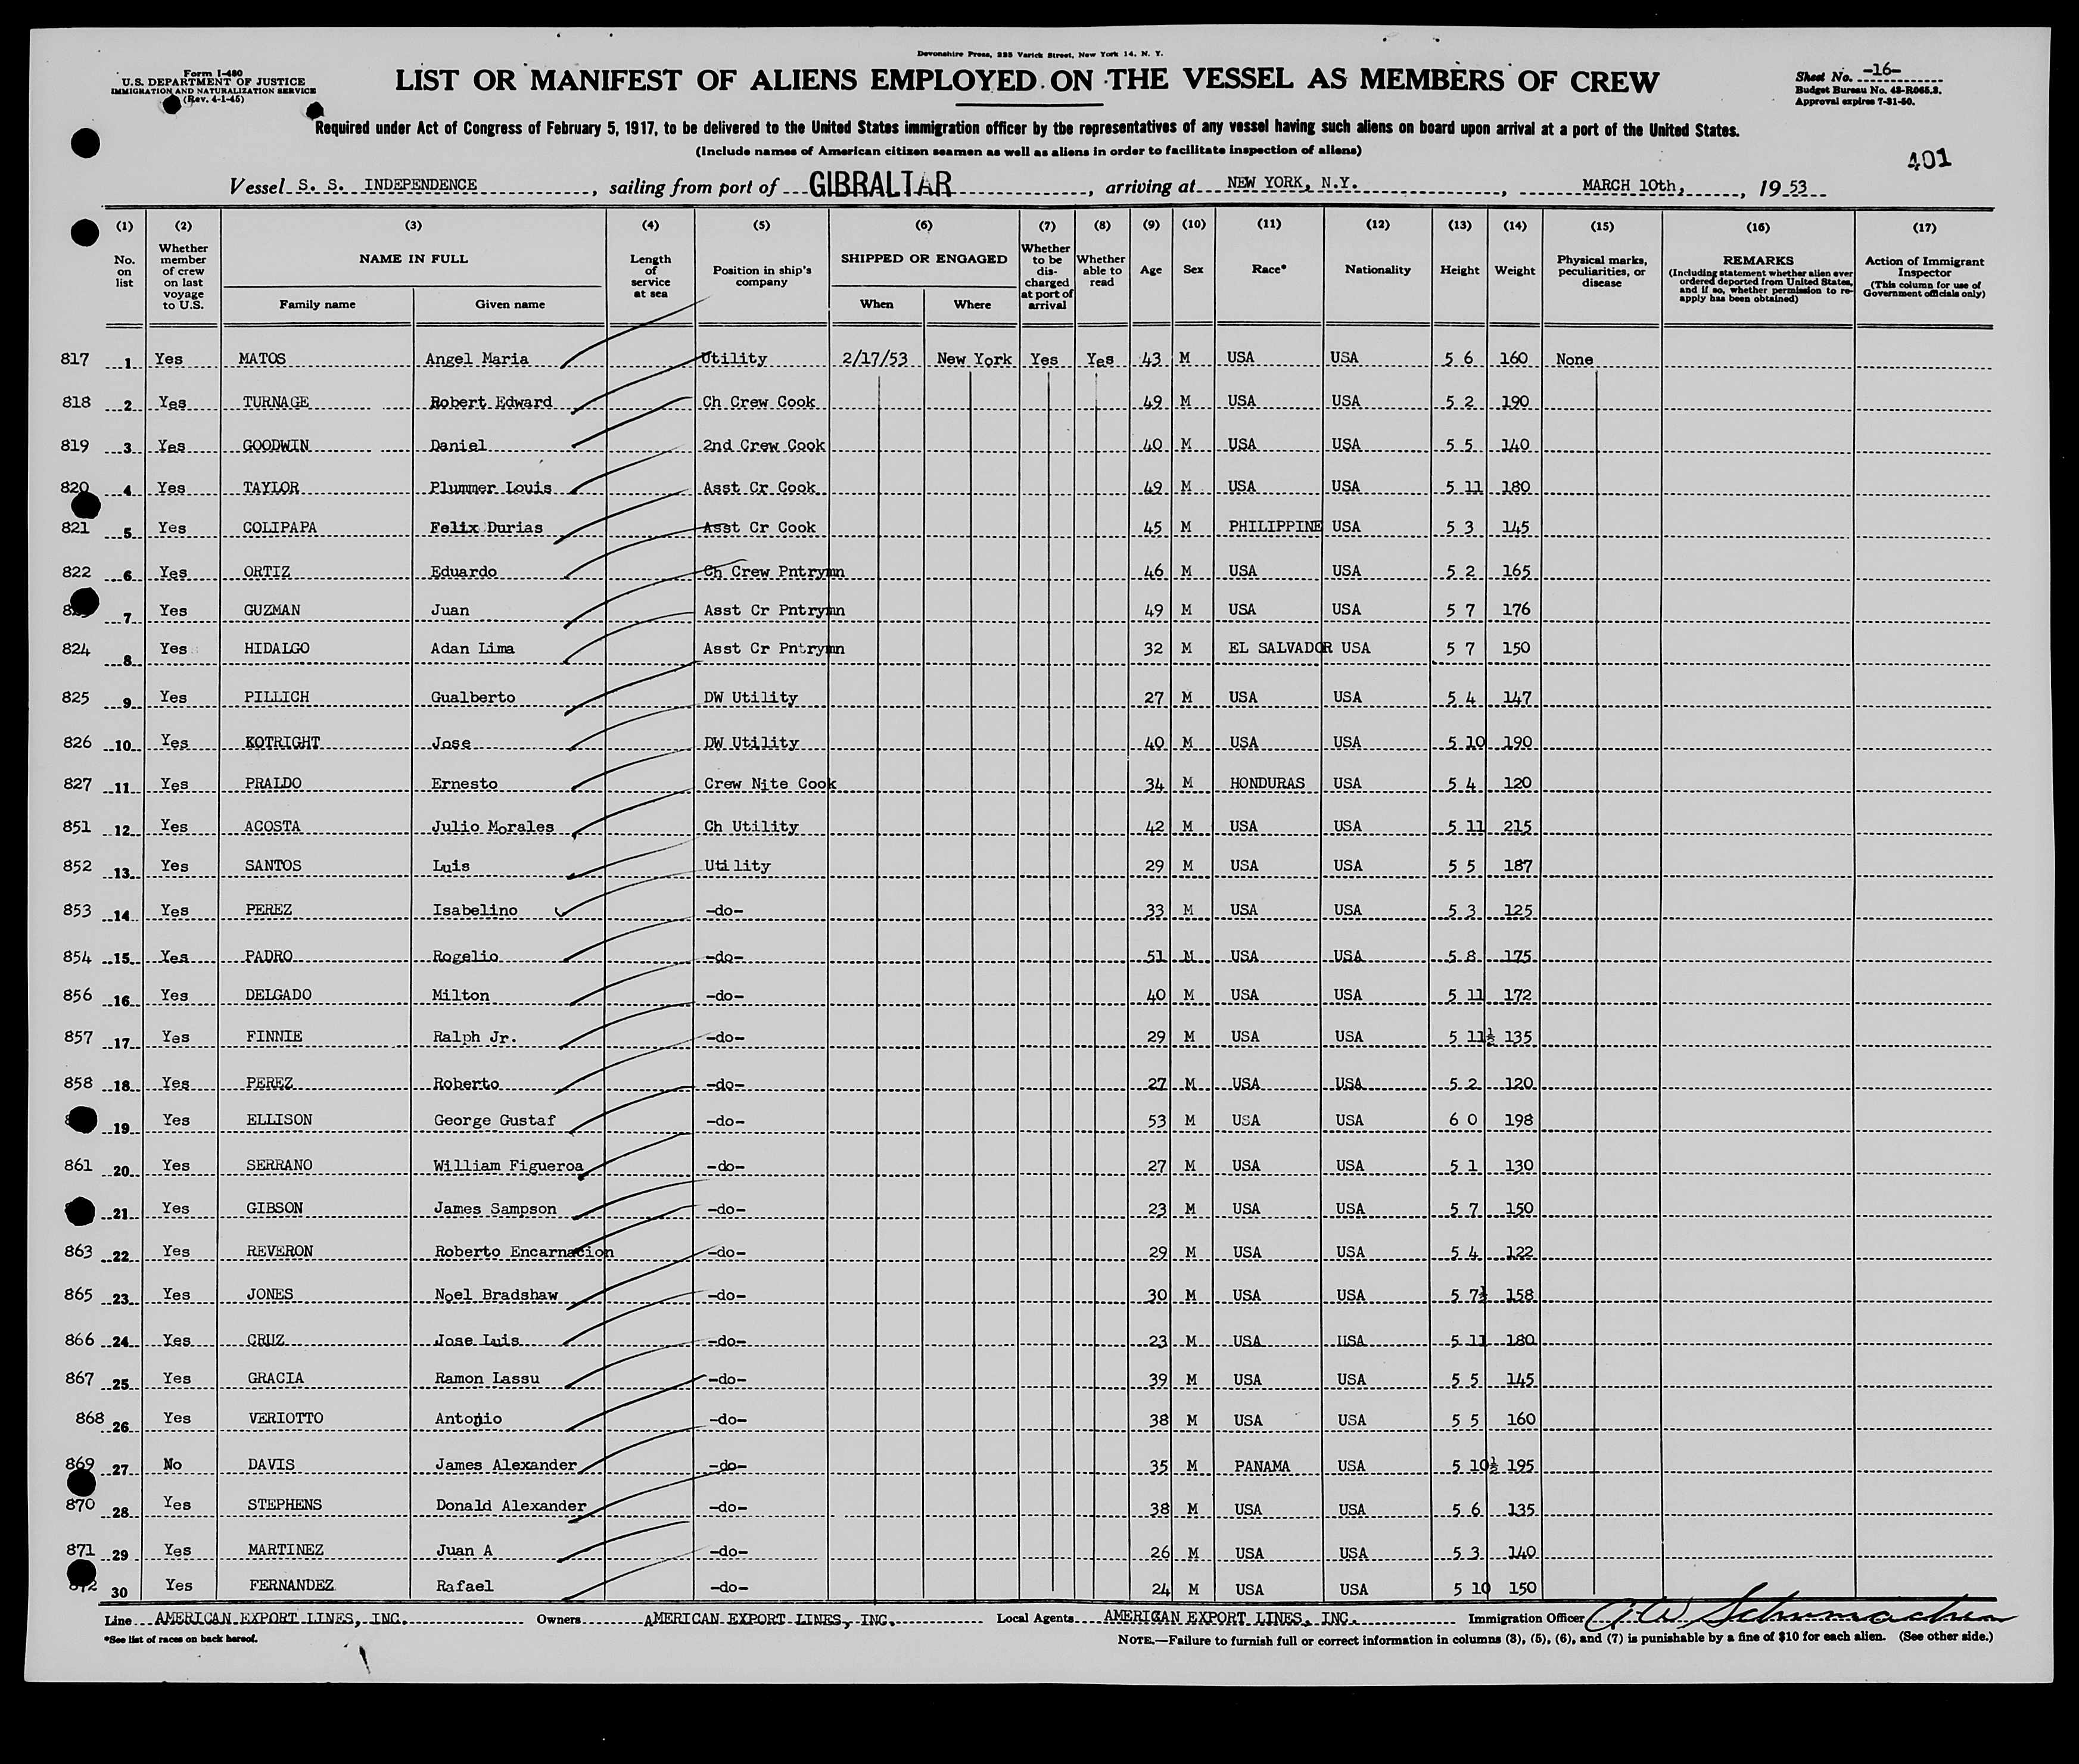 Devonshire Press, 225 Varick Street, New York 14, N. Y.
Form I-480
U.S. DEPARTMENT OF JUSTICE
IMMIGRATION AND NATURALIZATION SERVICE
(Rev. 4-1-45)
LIST OR MANIFEST OF ALIENS EMPLOYED ON THE VESSEL AS MEMBERS OF CREW
Sheet No. -16-
Budget Bureau No. 43-R065.3.
Approval expires 7-31-50.
Required under Act of Congress of February 5, 1917, to be delivered to the United States immigration officer by the representatives of any vessel having such aliens on board upon arrival at a port of the United States.
(Include names of American citizen seamen as well as aliens in order to facilitate inspection of aliens)
401
Vessel S. S. INDEPENDENCE, sailing from port of GIBRALTAR, arriving at NEW YORK, N.Y., MARCH 10th,, 19 53
(1) (2) (3) (4) (5) (6) (7) (8) (9) (10) (11) (12) (13) (14) (15) (16) (17)
No. on list
Whether member of crew on last voyage to U.S.
NAME IN FULL
Family name Given name
Length of service at sea
Position in ship's company
SHIPPED OR ENGAGED
When Where
Whether to be discharged at port of arrival
Whether able to read
Age
Sex
Race*
Nationality
Height
Weight
Physical marks, peculiarities, or disease
REMARKS
(Including statement whether alien ever ordered deported from United States, and if so, whether permission to re-apply has been obtained)
Action of Immigrant Inspector
(This column for use of Government officials only)
817 1 Yes MATOS Angel Maria Utility 2/17/53 New York Yes Yes 43 M USA USA 5 6 160 None
818 2 Yes TURNAGE Robert Edward Ch Crew Cook 49 M USA USA 5 2 190
819 3 Yes GOODWIN Daniel 2nd Crew Cook 40 M USA USA 5 5 140
820 4 Yes TAYLOR Plummer Louis Asst Cr Cook 49 M USA USA 5 11 180
821 5 Yes COLIPAPA Felix Durias Asst Cr Cook 45 M PHILIPPINE USA 5 3 145
822 6 Yes ORTIZ Eduardo Ch Crew Pntrymn 46 M USA USA 5 2 165
7 Yes GUZMAN Juan Asst Cr Pntrymn 49 M USA USA 5 7 176
824 8 Yes HIDALGO Adan Lima Asst Cr Pntrymn 32 M EL SALVADOR USA 5 7 150
825 9 Yes PILLICH Gualberto DW Utility 27 M USA USA 5 4 147
826 10 Yes KOTRIGHT Jose DW Utility 40 M USA USA 5 10 190
827 11 Yes PRALDO Ernesto Crew Nite Cook 34 M HONDURAS USA 5 4 120
851 12 Yes ACOSTA Julio Morales Ch Utility 42 M USA USA 5 11 215
852 13 Yes SANTOS Luis Utility 29 M USA USA 5 5 187
853 14 Yes PEREZ Isabelino -do- 33 M USA USA 5 3 125
854 15 Yes PADRO Rogelio -do- 51 M USA USA 5 8 175
856 16 Yes DELGADO Milton -do- 40 M USA USA 5 11 172
857 17 Yes FINNIE Ralph Jr. -do- 29 M USA USA 5 11½ 135
858 18 Yes PEREZ Roberto -do- 27 M USA USA 5 2 120
19 Yes ELLISON George Gustaf -do- 53 M USA USA 6 0 198
861 20 Yes SERRANO William Figueroa -do- 27 M USA USA 5 1 130
21 Yes GIBSON James Sampson -do- 23 M USA USA 5 7 150
863 22 Yes REVERON Roberto Encarnacion -do- 29 M USA USA 5 4 122
865 23 Yes JONES Noel Bradshaw -do- 30 M USA USA 5 7½ 158
866 24 Yes CRUZ Jose Luis -do- 23 M USA USA 5 11 180
867 25 Yes GRACIA Ramon Lassu -do- 39 M USA USA 5 5 145
868 26 Yes VERIOTTO Antonio -do- 38 M USA USA 5 5 160
869 27 No DAVIS James Alexander -do- 35 M PANAMA USA 5 10½ 195
870 28 Yes STEPHENS Donald Alexander -do- 38 M USA USA 5 6 135
871 29 Yes MARTINEZ Juan A -do- 26 M USA USA 5 3 140
872 30 Yes FERNANDEZ Rafael -do- 24 M USA USA 5 10 150
Line AMERICAN EXPORT LINES, INC. Owners AMERICAN EXPORT LINES, INC. Local Agents AMERICAN EXPORT LINES, INC. Immigration Officer
*See list of races on back hereof.
NOTE.—Failure to furnish full or correct information in columns (3), (5), (6), and (7) is punishable by a fine of $10 for each alien. (See other side.)